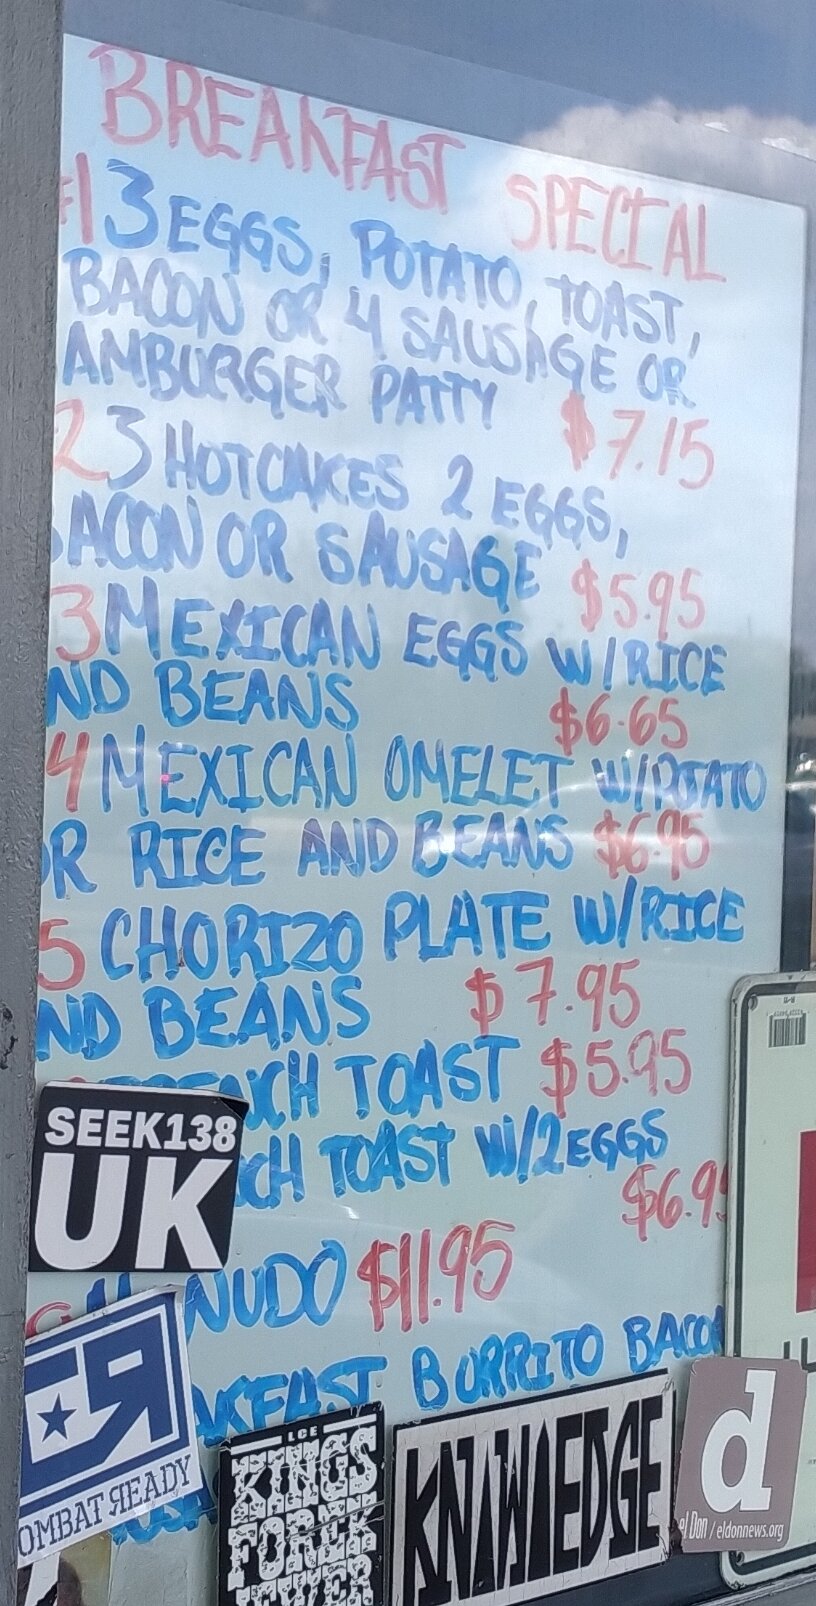 BREAKFAST SPECIAL
#1 3 EGGS, POTATO, TOAST,
BACON OR 4 SAUSAGE OR
AMBURGER PATTY $7.15
2 3 HOTCAKES 2 EGGS,
BACON OR SAUSAGE $5.95
3 MEXICAN EGGS W/RICE
ND BEANS $6.65
4 MEXICAN OMELET W/POTATO
OR RICE AND BEANS $6.95
5 CHORIZO PLATE W/RICE
ND BEANS $7.95
FRENCH TOAST $5.95
CH TOAST W/2 EGGS
$6.95
NUDO $11.95
AKFAST BURRITO BACON
SEEK138
UK
OMBAT READY
ICE
KINGS
FOREVER
KNOWLEDGE
d
el Don / eldonnews.org